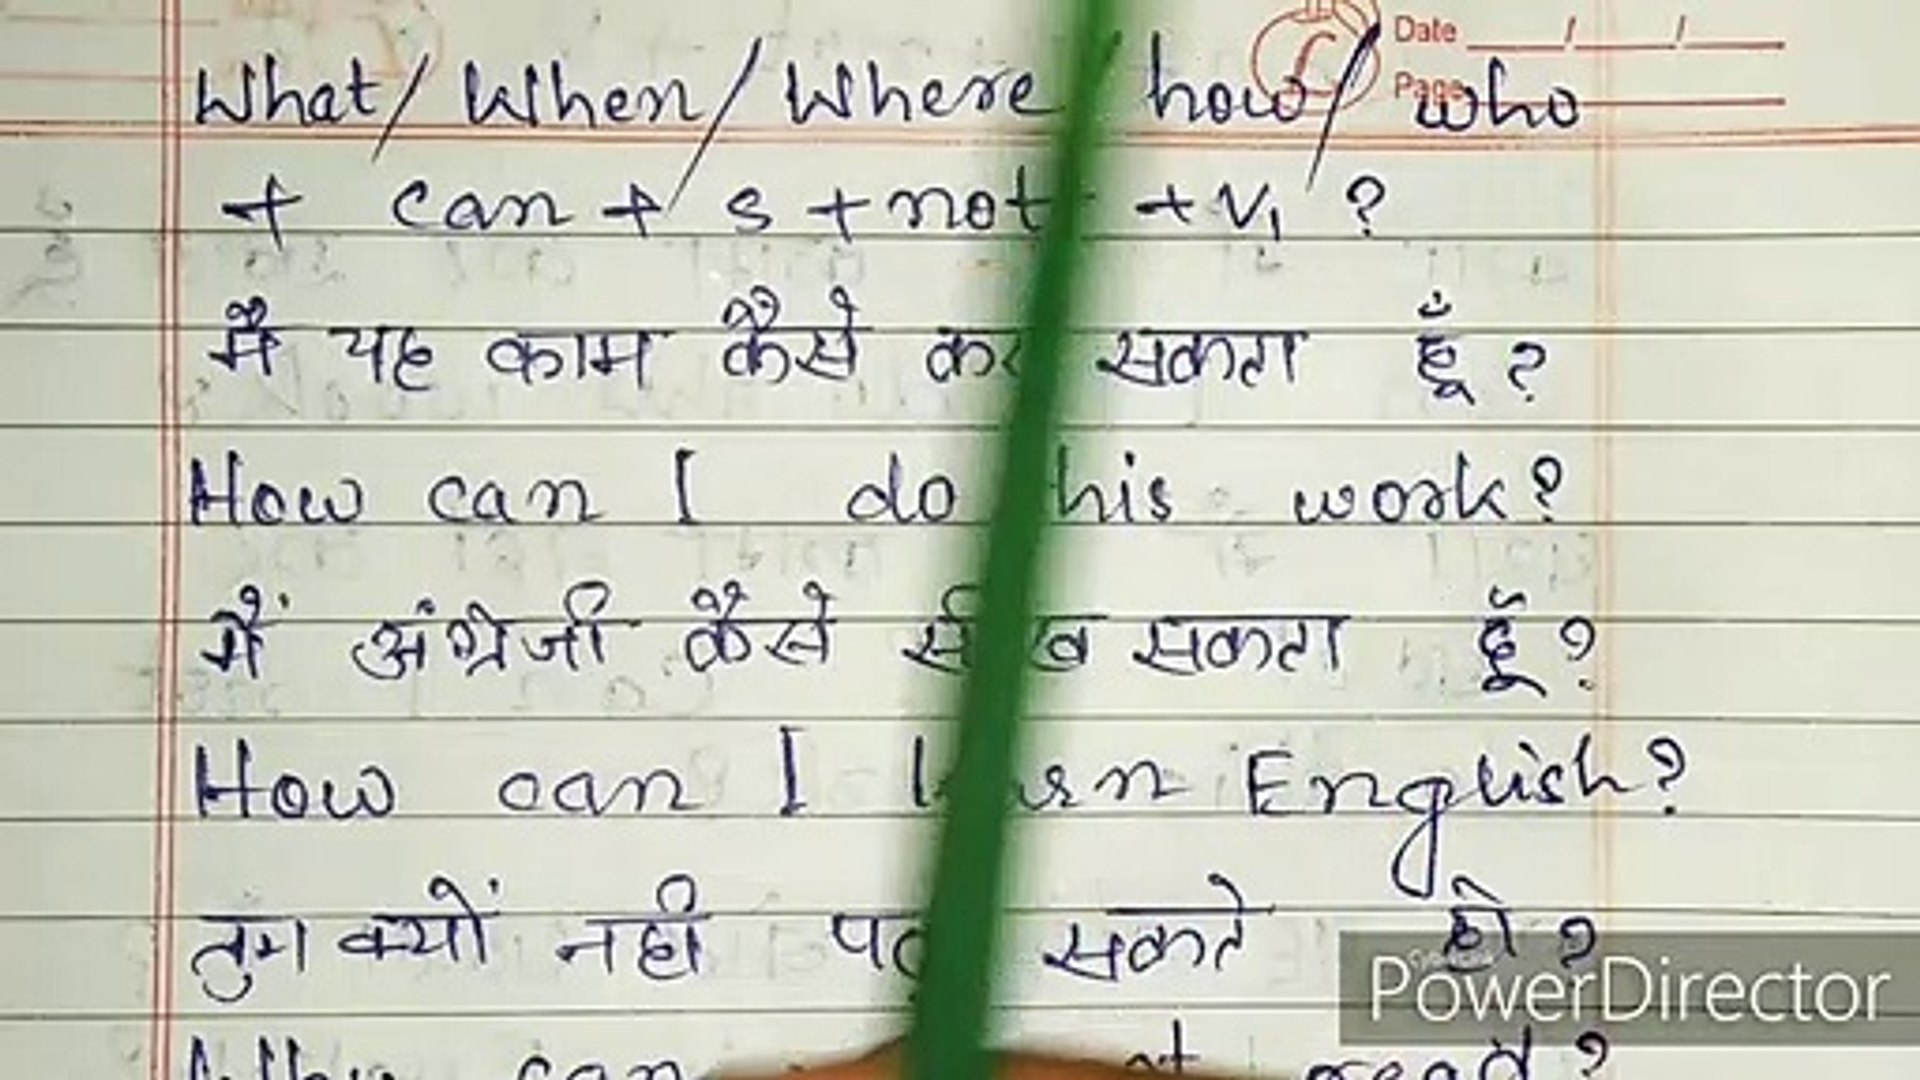 Date
Page
What/ When/ Where how/ who
+ can + s + not + V1 ?
मैं यह काम कैसे कर सकता हूँ ?
How can I do his work?
मैं अंग्रेजी कैसे सीख सकता हूँ ?
How can I English?
तुम क्यों नही सकते हो ?
PowerDirector
Why can read ?